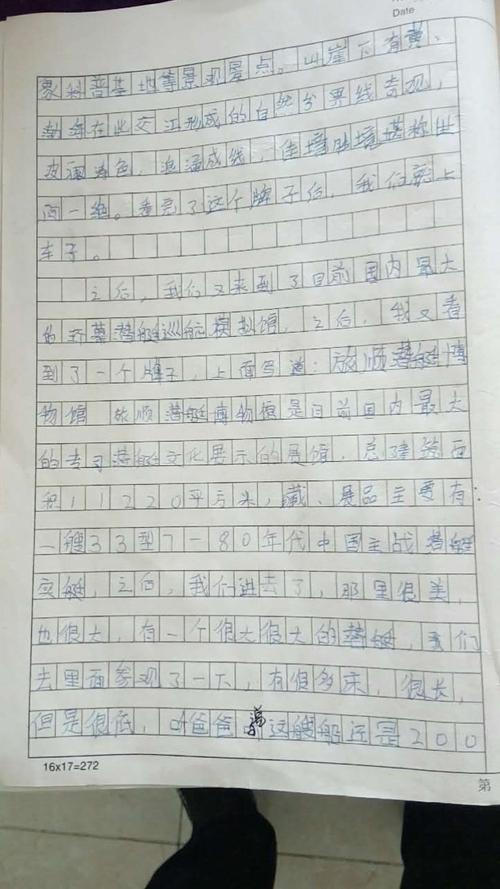 Date
家科普基地等景观景点。山崖下有黄、
渤海在此交汇形成的自然分界线奇观，
波澜 色， 成线，佳境胜境堪称世
间一绝。看完了这个牌子后，我们就上
车子。
之后，我们又来到了目前国内最大
的 幕潜艇巡航模拟馆，之后，我又看
到了一个牌子，上面写道：旅顺潜艇博
物馆 旅顺潜艇博物馆是目前国内最大
的专习潜艇文化展示的展馆，总建筑面
积11220平方米，藏、展品主要有
一艘33型7-80年代中国主战潜艇
实艇，之后，我们进去了，那里很美，
也很大，有一个很大很大的潜艇，我们
去里面参观了一下，有很多床，很长，
但是很低，听爸爸 这艘船远是200
16x17=272
第